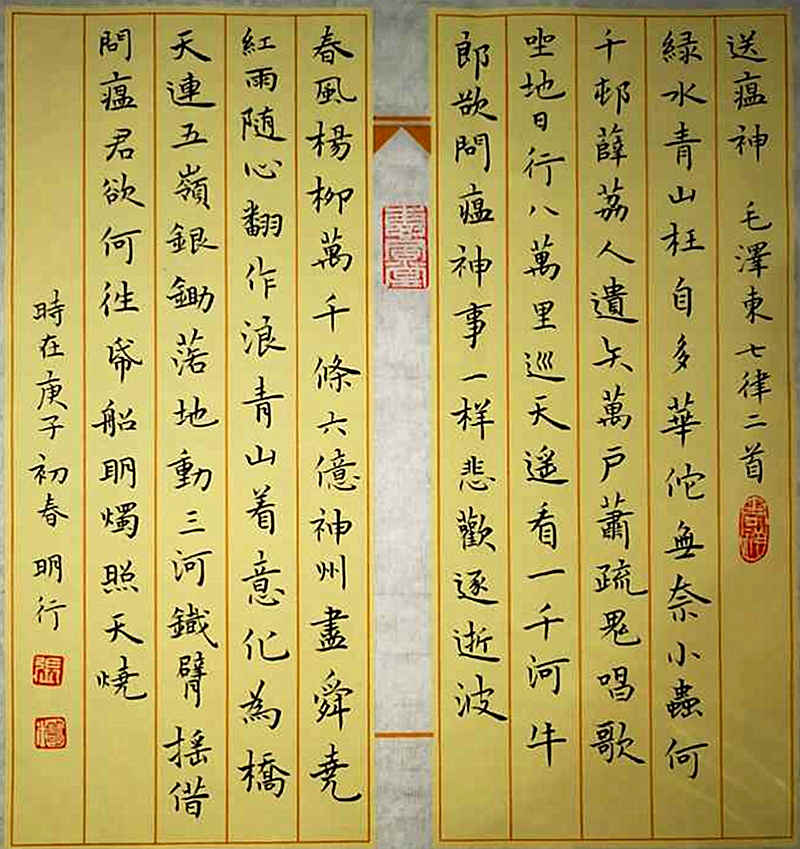 送瘟神 毛澤東七律二首
緑水青山枉自多華佗無奈小蟲何
千邨薜荔人遺矢萬戶蕭疏鬼唱歌
坐地日行八萬里巡天遙看一千河牛
郎欲問瘟神事一样悲歡逐逝波
春風楊柳萬千條六億神州盡舜堯
紅雨随心翻作浪青山着意化為橋
天連五嶺銀鋤落地動三河鐵臂搖借
問瘟君欲何往帋船明燭照天燒
時在庚子初春 明行